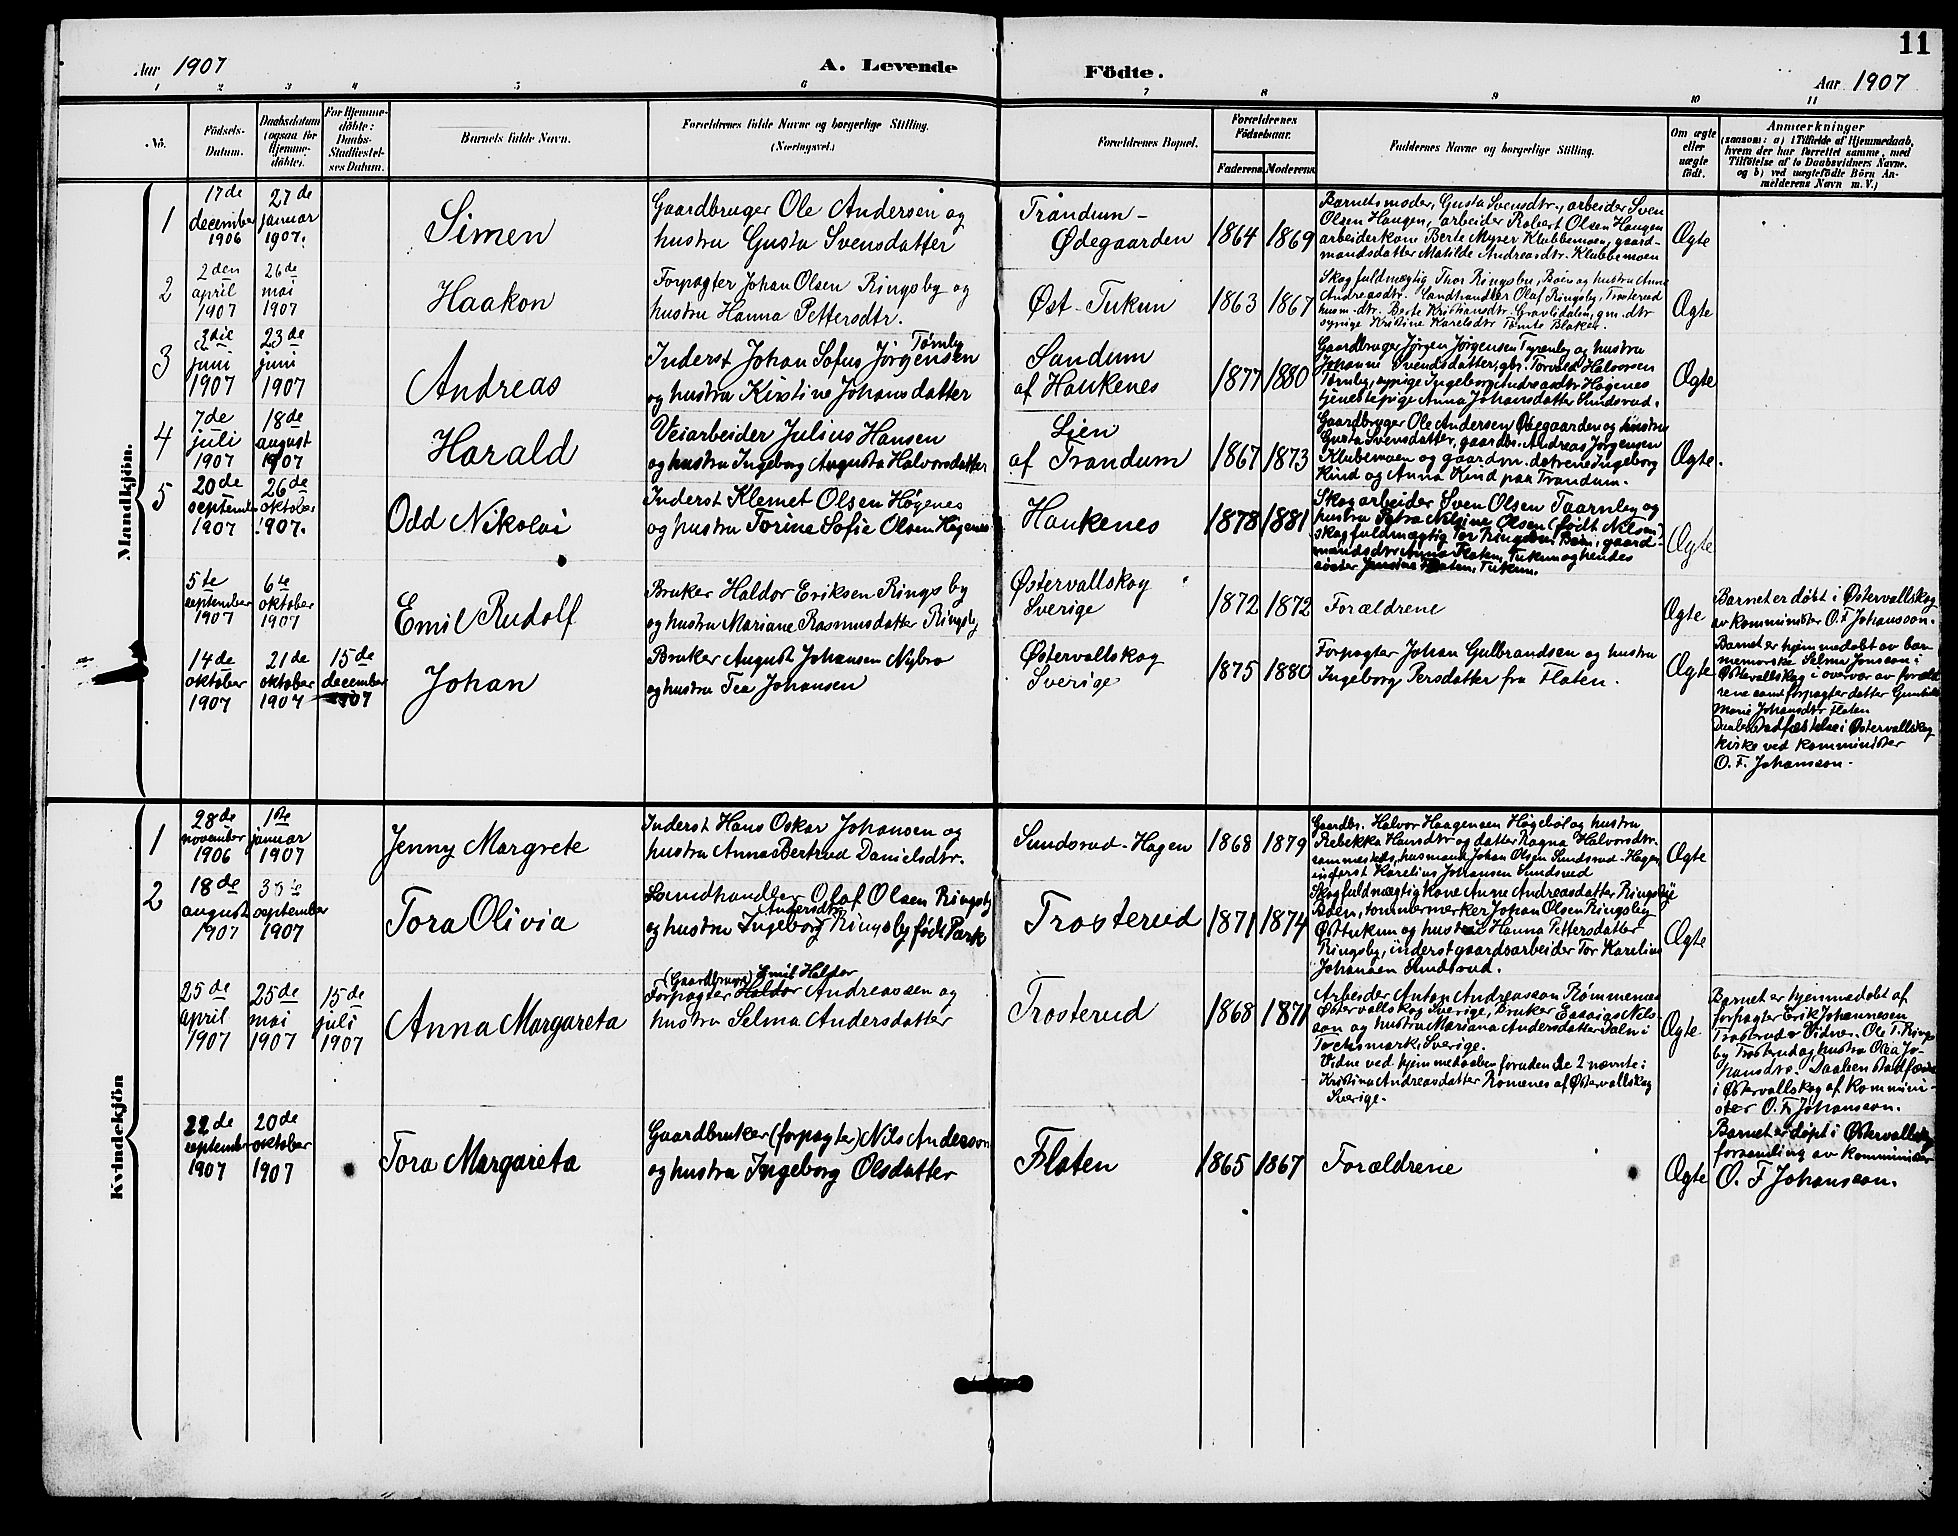 11
Aar 1907
A. Levende
Födte.
Aar 1907
1 2 3 4 5 6 7 8 9 10 11
No.
Födsels-
Datum.
Daabsdatum
(ogsaa for
Hjemme-
døbte).
For Hjemme-
döbte:
Daabs-
Stadfæstel-
ses Datum.
Barnets fulde Navn.
Forældrenes fulde Navne og borgerlige Stilling.
(Næringsvei.)
Forældrenes Bopæl.
Forældrenes
Födselsaar.
Faderens
Moderens
Faddernes Navne og borgerlige Stilling.
Om ægte
eller
uægte
födt.
Anmærkninger
(saasom: a) i Tilfælde af Hjemmedaab,
hvem der har forrettet samme, med
Tilföielse af to Daabsvidners Navne.
og b) ved uægtefödte Börn An-
melderens Navn m. V.)
Mandkjön.
1
17de
december
1906
27de
januar
1907.
Simen
Gaardbruger Ole Andersen og
hustru Gusta Svensdatter
Trandum-
Ødegaarden
1864
1869
Barnets moder, Gusta Svensdtr., arbeider Sven
Olsen Haugen, arbeider Robert Olsen Haugen
arbeiderkone Berte Myrer Klubbemoen, gaard-
mandsdatter Matilde Andreasdtr. Klubbemoen
Ægte
2
2den
april
1907
26de
mai
1907
Haakon
Forpagter Johan Olsen Ringsby og
hustru Hanna Pettersdtr.
Øst-Tukun
1863
1867
Skogfuldmægtig Thor Ringsby, Böen og hustru Anne
Andreasdtr. Landhandler Olaf Ringsby, Trosterud
husm.-dtr. Berte Kristiansdtr. Gravlidalen, gm. dtr
og pige Kristine Karelsdtr Tomte Blaker.
Ægte
3
3die
juni
1907
23de
juni
1907
Andreas
Tørnby
Inderst Johan Sofus Jörgensen
og hustru Kirstine Johansdatter
Sandum
af Haukenes
1877
1880
Gaardbruger Jörgen Jörgensen Tyrenby og hustru
Johanne Svendsdatter, gbr. Torvald Halvorsen
Tørnby, og pige Ingeborg Andreasdtr Hagenes
tjenestepige Anna Johansdatter Sundsrud.
Ægte
4
7de
juli
1907
18de
august
1907
Harald
Veiarbeider Julius Hansen
og hustru Ingeborg Augusta Halvorsdatter
Lien
af Trandum
1867
1873
Gaardbruger Ole Andersen Ødegaarden og hustru
Gusta Svensdatter, gaardbr. Andreas Jörgensen
Klubemoen og gaardm.døtrene Ingeborg
Kind og Anna Kind paa Trandum.
Ægte.
5
20de
september
1907
26de
oktober
1907.
Odd Nikolai
Inderst Klemet Olsen Högenes
og hustru Torine Sofie Olsen Högenes
Haukenes
1878
1881
Skogarbeider Sven Olsen Taarnby og
hustru Petra Nelsine Olsen (født Nelsen)
skogfuldmægtig Tor Ringsby Böen, gaard-
mandsdtr Anna Flaten, Tukun og hendes
søster Flaten, Tukun.
Ægte
5te
september
1907
6te
oktober
1907
Emil Rudolf
Bruker Haldor Eriksen Ringsby
og hustru Mariane Rasmusdatter Ringsby
Østervallskog
Sverige
1872
1872
Forældrene
Ægte
Barnet er døbt i Østervallskog
av kommunister O. F Johansson.
14de
oktober
1907
21de
oktober
1907
15de
december
1907
Johan
Bruker August Johansen Nybro
og hustru Tea Johansen
Østervallskog
Sverige
1875
1880
Forpagter Johan Gulbrandsen og hustru
Ingeborg Persdatter fra Flaten.
Ægte
Barnet er hjemmedøbt av bar-
nemorske Selma Jonsson i
Østervallskog i overvær av foræld-
rene samt forpagterdatter
Marie Johansdtr Flaten
Daaben Stadfæstelse i Østervallskog
kirke ved komminister
O. F. Johansson.
Kvindekjön
1
28de
november
1906
1ste
januar
1907
Jenny Margrete
Inderst Hans Oskar Johansen og
hustru Anna Bertrud Danielsdtr.
Sundsrud-Hagen
1868
1879
Gaardbr. Halvor Haagensen Högeböl og hustru
Rebekka Hansdtr og datter Ragna Halvorsdtr.
sammesteds, husmand Johan Olsen Sundsrud-Hagen
inderst Karelius Johansen Sundsrud
Ægte
2
18de
august
1907
september
1907
Tora Olivia
Landhandler Olaf Olsen Ringsby
Andersdtr
og hustru Ingeborg Ringsby født Park
Trosterud
1871
1874
Skogfuldmægtigkone Anne Andreasdatter Ringsby
Böen, tømmermerker Johan Olsen Ringsby
Østtukun og hustru Hanna Pettersdatter
Ringsby, inderst gaardsarbeider Tor Karelius
Johansen Sundsrud.
Ægte
25de
april
1907
25de
mai
1907
15de
juli
1907
Anna Margareta
(Gaardbruger) Emil Haldor
Forpagter Haldor Andreassen og
hustru Selma Andersdatter
Trosterud
1868
1871
Arbeider Anton Andreasson Rømmenes
Østervallskog Sverige, Bruker Nils-
son og hustru Mariana Andersdatter Daln i
Tocksmark, Sverige.
Vidne ved hjemmedaaben foruden de 2 nævnte:
Kristina Andreasdatter Romenes af Østervallskog
Sverige.
Ægte
Barnet er hjemmedøbt af
forpagter Erik Johannesen
Trosterud Vidner. Ole T. Rings
by Trosterud og hustru Olea Jo-
hansdtr. Daaben stadfæs
i Østervallskog af kommini-
ster O. F. Johansson.
22de
september
1907
20de
oktober
1907
Tora Margareta
Gaardbruker (forpagter) Nils Anderson
og hustru Ingeborg Olsdatter
Flaten
1865
1867
Forældrene
Ægte
Barnet er døpt i Østervallskog
forsamling av komminister
O. F Johansson.